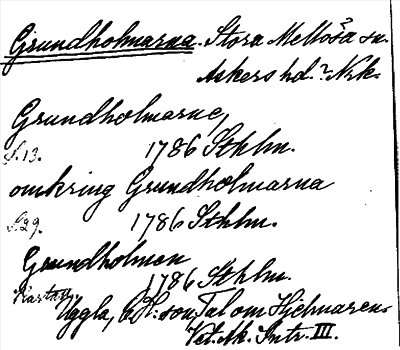 Grundholmarna. Stora Mellösa sn.
Askers hd. Nrk.
Grundholmarne,
S. 13. 1786 Sthlm.
omkring Grundholmarna
S. 29. 1786 Sthlm.
Grundholmen
1786 Sthlm.
Kartan
Uggla, C. H:son, Tal om Hjelmaren.
Vet. Ak. Intr. III.